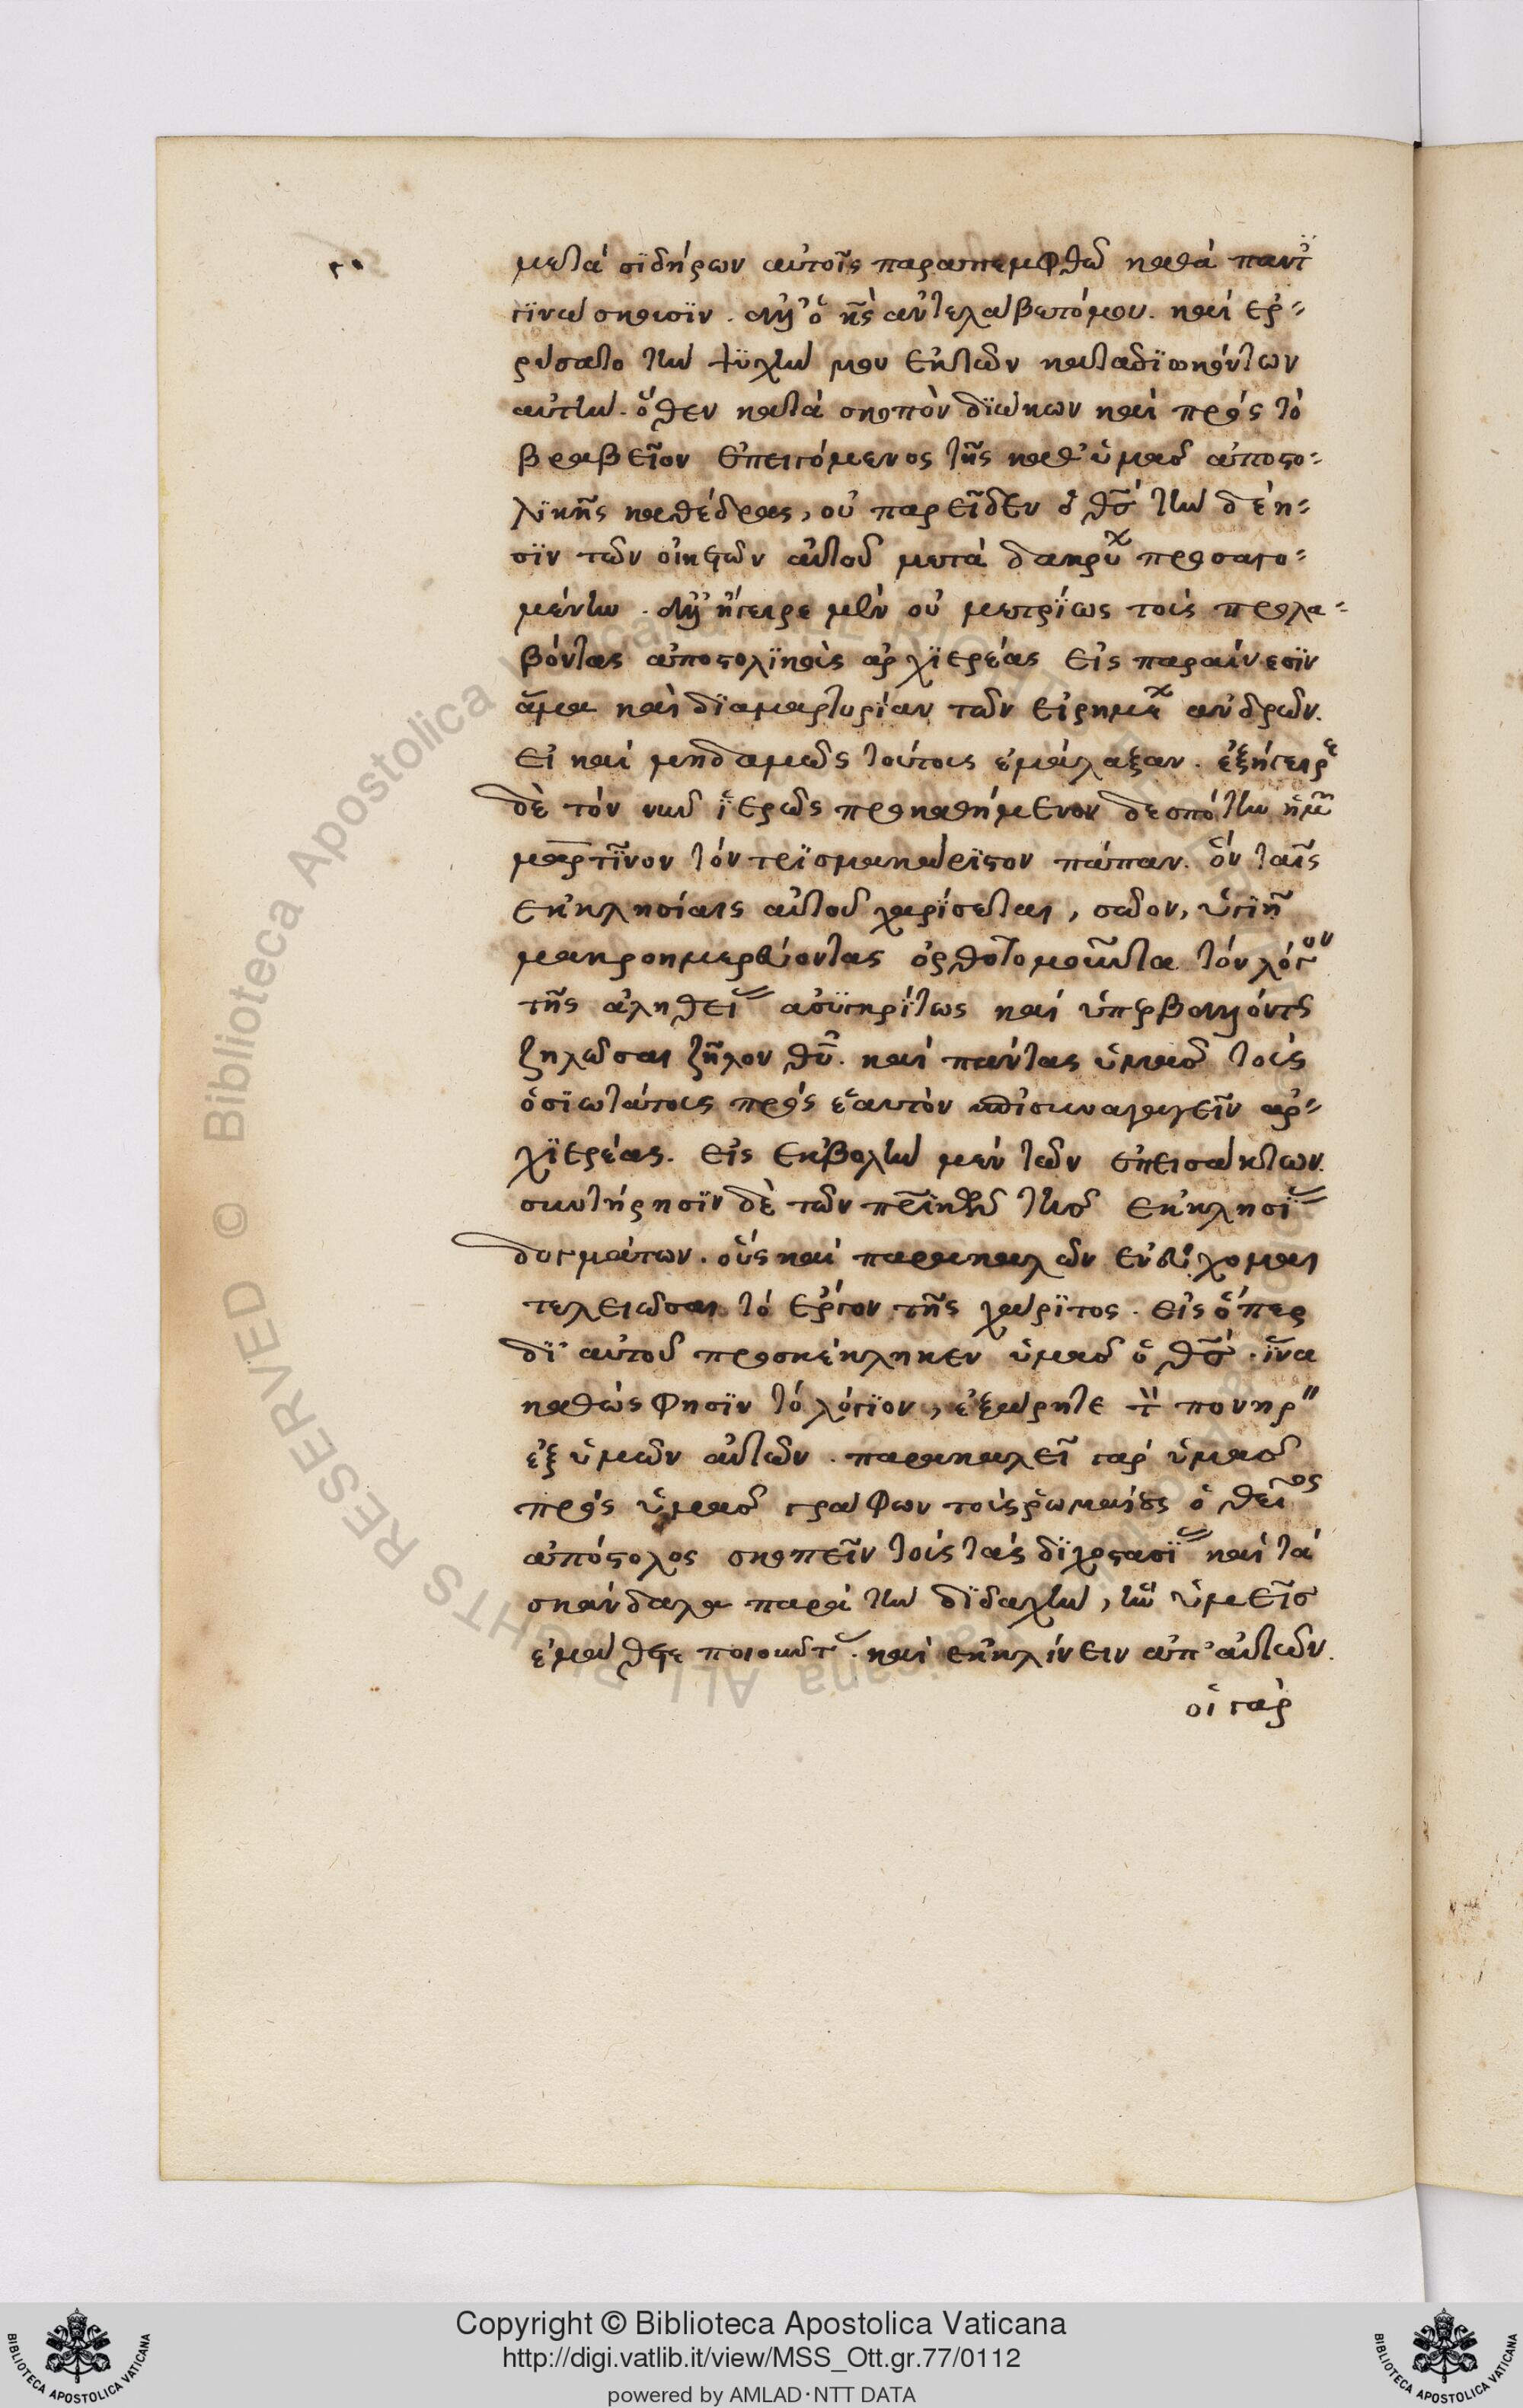 μετὰ σϊδήρων αὐτοῖς παραπεμφθῶ καθὰ παντ
γϊνώσκουσϊν. ἀλλ' ὁ κ̅ς̅ ἀντελάβετό μου. καὶ ἐρ-
ρύσατο τὴν ψϋχήν μου ἐκ τῶν καταδϊωκόντων
αὐτήν. ὅθεν κατὰ σκοπὸν δϊώκων καὶ πρὸς τὸ
βραβεῖον ἐπειγόμενος τῆς καθ' ὑμᾶς ἀποστο-
λϊκῆς καθέδρας, οὐ παρεῖδεν ὁ θ̅ς̅ τὴν δέη-
σϊν τῶν οἰκετῶν αὐτοῦ μετὰ δακρύ προσαγο-
μένην. ἀλλ' ἤγειρε μὲν οὐ μετρϊως τοὺς προλα-
βόντας ἀποστολϊκοὺς ἀρχϊερέας εἰς παραίνεσϊν
ἅμα καὶ δϊαμαρτυρϊαν τῶν εἰρημέ ἀνδρῶν.
εἰ καὶ μηδαμῶς τούτους ἐμάλαξαν. ἐξήγειρε
δὲ τὸν νῦν ϊερῶς προκαθήμενον δεσπότην ἡμ
μαρτῖνον τὸν τρϊσμακάρϊστον πάπαν. ὃν ταῖς
ἐκκλησίαις αὐτοῦ χαρϊσεται, σῶον, ὑγϊῆ
μακροημερεύοντα ὀρθοτομοῦντα τὸν λόγον
τῆς ἀληθεί ἀσϋγκρϊτως καὶ ὑπερβαλλόντς
ζηλῶσαι ζῆλον θ̅υ̅. καὶ πάντας ὑμᾶς τοὺς
ὁσϊωτάτους πρὸς ἑαυτὸν ἐπισυναγαγεῖν ἀρ-
χϊερέας. εἰς ἐκβολὴν μὲν τῶν ἐπεισάκτων.
συντήρησϊν δὲ τῶν π̅ρ̅ϊκῶν τῆς ἐκκλησϊ
δογμάτων. οὓς καὶ παρακαλῶν εὔχομαι
τελειῶσαι τὸ ἔργον τῆς χάρϊτος. εἰς ὅπερ
δϊ' αὐτοῦ προσκέκληκεν ὑμᾶς ὁ θ̅ς̅. ἵνα
καθώς φησϊν τὸ λόγϊον, ἐξάρητε τὸν πονηρ
ἐξ ὑμῶν αὐτῶν. παρακαλεῖ γὰρ ὑμᾶς
πρὸς ὑμᾶς γράφων τοὺς ῥωμαίους ὁ θεῖος
ἀπόστολος σκοπεῖν τοὺς τὰς δϊχοστασϊ καὶ τὰ
σκάνδαλα παρὰ τὴν δϊδαχὴν, ἣν ὑμεῖς
ἐμάθετε ποιοῦντ. καὶ ἐκκλίνειν ἀπ' αὐτῶν.
οἱ γὰρ
Copyright © Biblioteca Apostolica Vaticana
http://digi.vatlib.it/view/MSS_Ott.gr.77/0112
powered by AMLAD·NTT DATA